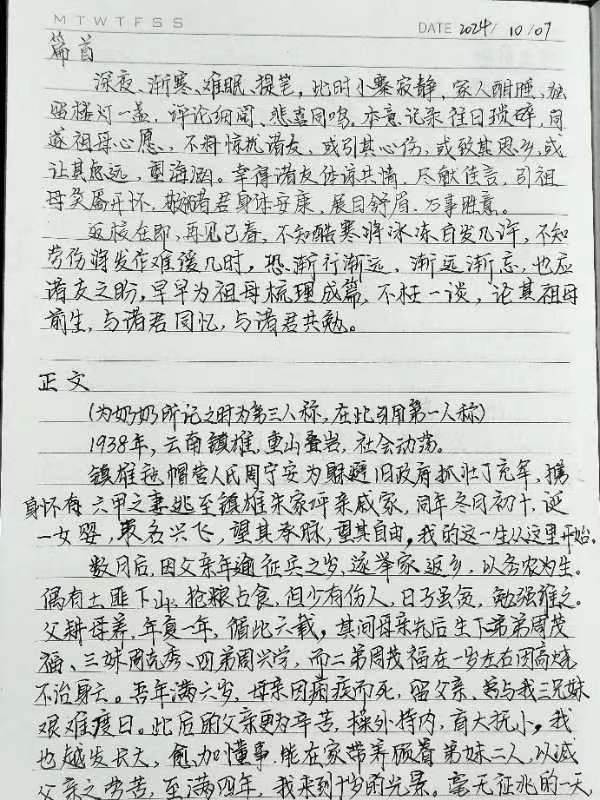 MTWTFSS
DATE 2024/10/07
篇首
深夜、渐寒、难眠、提笔,此时小寨寂静,家人酣睡、独
留楼灯一盏,评论细阅、悲喜同鸣。本意记录往日琐碎,同
遂祖母心愿,不料惊扰诸友,或引其心伤,或致其思乡,或
让其忆远,望海涵。幸得诸友体谅共情,尽献佳言,引祖
母笑属开怀,敬诸君身体安康,展目舒眉,万事胜意。
返校在即,再见已春,不知酷寒将冰冻白发几许,不知
劳伤将发作难缓几时,恐渐行渐远,渐远渐忘,也应
诸友之盼,早早为祖母梳理成篇,不枉一谈,论其祖母
前生,与诸君同忆,与诸君共勉。
正文
(为奶奶所记之时为第三人称,在此引用第一人称)
1938年,云南镇雄,重山叠岩,社会动荡。
镇雄毡帽营人民周宁安为躲避旧政府抓壮丁充军,携
身怀有六甲之妻逃至镇雄朱家坪亲戚家,同年冬月初十,诞
一女婴,取名兴飞,望其春脉,望其自由,我的这一生从这里开始。
数月后,因父亲年逾征兵之岁,遂举家返乡,以务农为生。
偶有土匪下山,抢粮占食,但少有伤人,日子虽贫,勉强维之。
父耕母养,年复一年,循此六载,其间母亲先后生下二弟周茂
福、三妹周克秀、四弟周兴学,而二弟周茂福在一岁左右因高烧
不治身亡。吾年满六岁,母亲因病疫而死,留父亲、弟与我三兄妹
艰难度日。此后的父亲更为辛苦,操外持内,育大抚小,我
也越发长大,愈加懂事,能在家带养照看弟妹二人,以减
父亲之劳苦,至满四年,我来到十岁的光景。毫无征兆的一天,